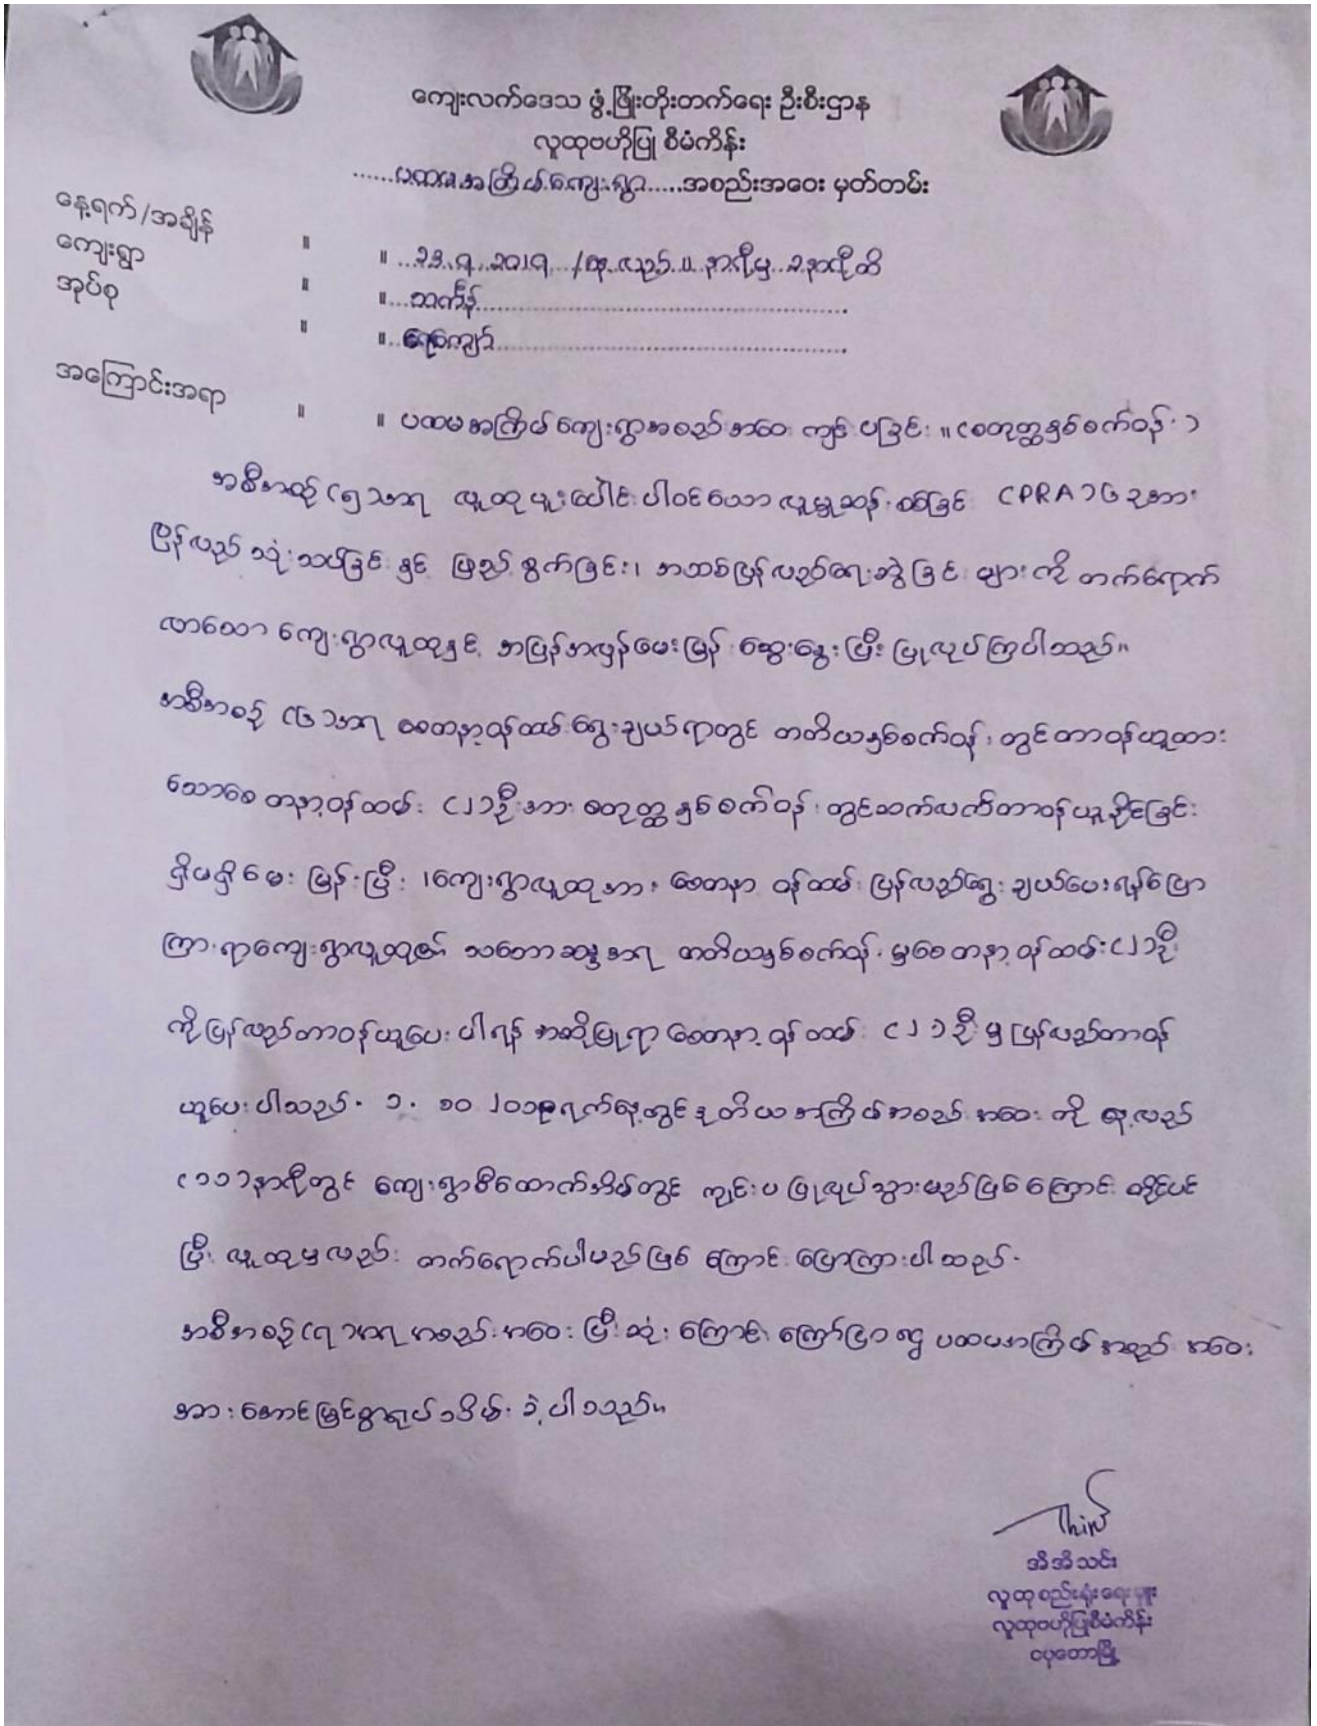 ကျေးလက်ဒေသ ဖွံ့ဖြိုးတိုးတက်ရေး ဦးစီးဌာန
လူထုဗဟိုပြု စီမံကိန်း
......ပထမအကြိမ်ကျေးရွာ.....အစည်းအဝေး မှတ်တမ်း
နေ့ရက်/အချိန် ။ ။ ...၁၃.၇.၂၀၁၇ /နေ့လည် ။ နာရီမှ ၃နာရီထိ
ကျေးရွာ ။ ။...သင်္ကန်း
အုပ်စု ။ ။..ရေကျော်
အကြောင်းအရာ ။ ။ ပထမအကြိမ်ကျေးရွာအစည်းအဝေး ကျင်းပခြင်း ။ (စတုတ္ထနှစ်စက်ဝန်း)
အစီအစဉ် (၅)အရ လူထုပူးပေါင်းပါဝင်သော လူမှုဆန်းစစ်ခြင်း (PRA) ၆ ခုအား
ပြန်လည်သုံးသပ်ခြင်းနှင့် ဖြည့်စွက်ခြင်း၊ အသစ်ပြန်လည်ရေးဆွဲခြင်းများကို တက်ရောက်
လာသော ကျေးရွာလူထုနှင့် အပြန်အလှန်မေးမြန်းဆွေးနွေးပြီး ပြုလုပ်ကြပါသည်။
အစီအစဉ် (၆)အရ စေတနာ့ဝန်ထမ်းရွေးချယ်ရာတွင် တတိယနှစ်စက်ဝန်းတွင်တာဝန်ယူထား
သောစေတနာ့ဝန်ထမ်း (၂)ဦးအား စတုတ္ထနှစ်စက်ဝန်းတွင်ဆက်လက်တာဝန်ယူနိုင်ခြင်း
ရှိမရှိမေးမြန်းပြီး ၊ကျေးရွာလူထုအား စေတနာ့ဝန်ထမ်းပြန်လည်ရွေးချယ်ပေးရန်ပြော
ကြားရာကျေးရွာလူထု၏ သဘောဆန္ဒအရ တတိယနှစ်စက်ဝန်းမှစေတနာ့ဝန်ထမ်း(၂)ဦး
ကိုပြန်လည်တာဝန်ယူပေးပါရန် အဆိုပြုရာစေတနာ့ဝန်ထမ်း (၂)ဦးမှ ပြန်လည်တာဝန်
ယူပေးပါသည်. ၁. ၁၀ ရက်နေ့တွင်ဒုတိယအကြိမ်အစည်းအဝေးကို နေ့လည်
(၁၁)နာရီတွင် ကျေးရွာစီထောက်အိမ်တွင် ကျင်းပပြုလုပ်သွားမည်ဖြစ်ကြောင်း တိုင်ပင်
ပြီး လူထုမှလည်း တက်ရောက်ပါမည်ဖြစ်ကြောင်း ပြောကြားပါသည်.
အစီအစဉ်(၇)အရ အစည်းအဝေးပြီးဆုံးကြောင်း ကြေညာ၍ ပထမအကြိမ်အစည်းအဝေး
အားအောင်မြင်စွာရုပ်သိမ်းခဲ့ပါသည်။
Thin
အိအိသင်း
လူထုစည်းရုံးရေးမှူး
လူထုဗဟိုပြုစီမံကိန်း
ငပုတောမြို့